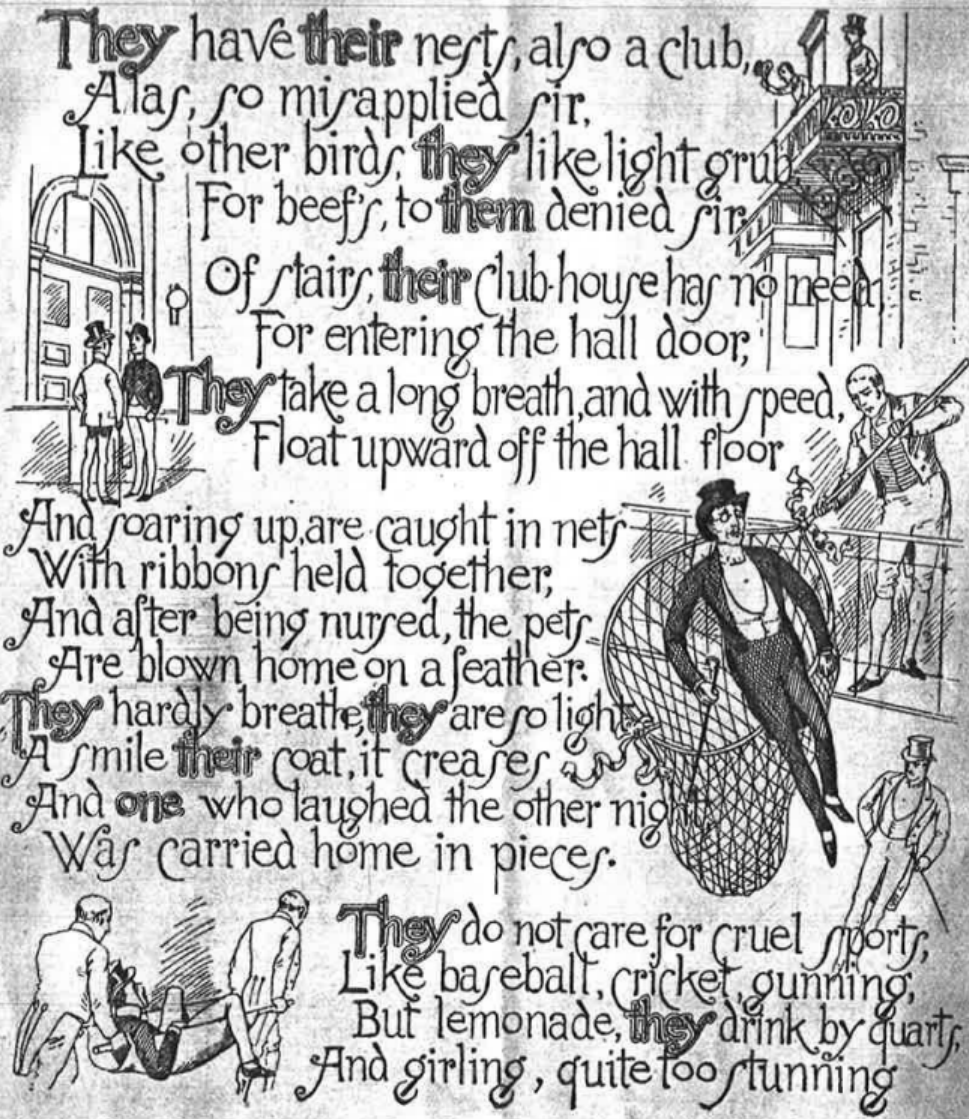 They have their nests, also a club,
Alas, so misapplied sir,
Like other birds, they like light grub
For beef's, to them denied sir.
Of stairs, their club-house has no need,
For entering the hall door,
They take a long breath, and with speed,
Float upward off the hall floor
And soaring up, are caught in nets
With ribbons held together,
And after being nursed, the pets
Are blown home on a feather.
They hardly breathe, they are so light,
A smile their coat, it creases
And one who laughed the other night
Was carried home in pieces.
They do not care for cruel sports,
Like baseball, cricket, gunning,
But lemonade, they drink by quarts,
And girling, quite too stunning